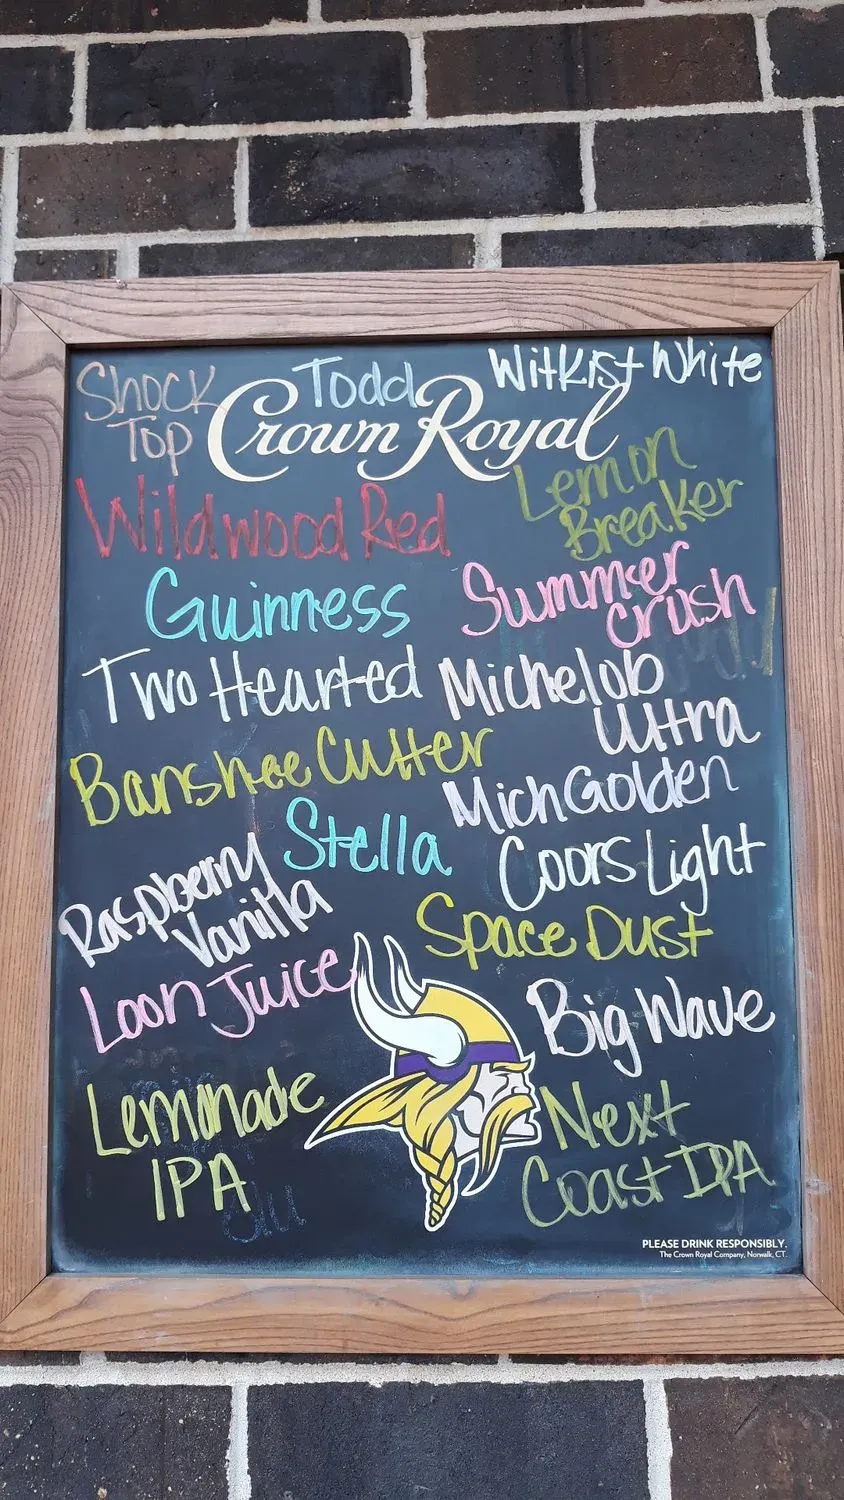 Shock
Top
Todd
Witkist White
Crown Royal
Wildwood Red
Lemon
Breaker
Guinness
Summer
Crush
Two Hearted
Michelob
Ultra
Banshee Cutter
Mich Golden
Stella
Coors Light
Raspberry
Vanilla
Space Dust
Loon Juice
Big Wave
Lemonade
IPA
Next
Coast IPA
PLEASE DRINK RESPONSIBLY.
The Crown Royal Company, Norwalk, CT.